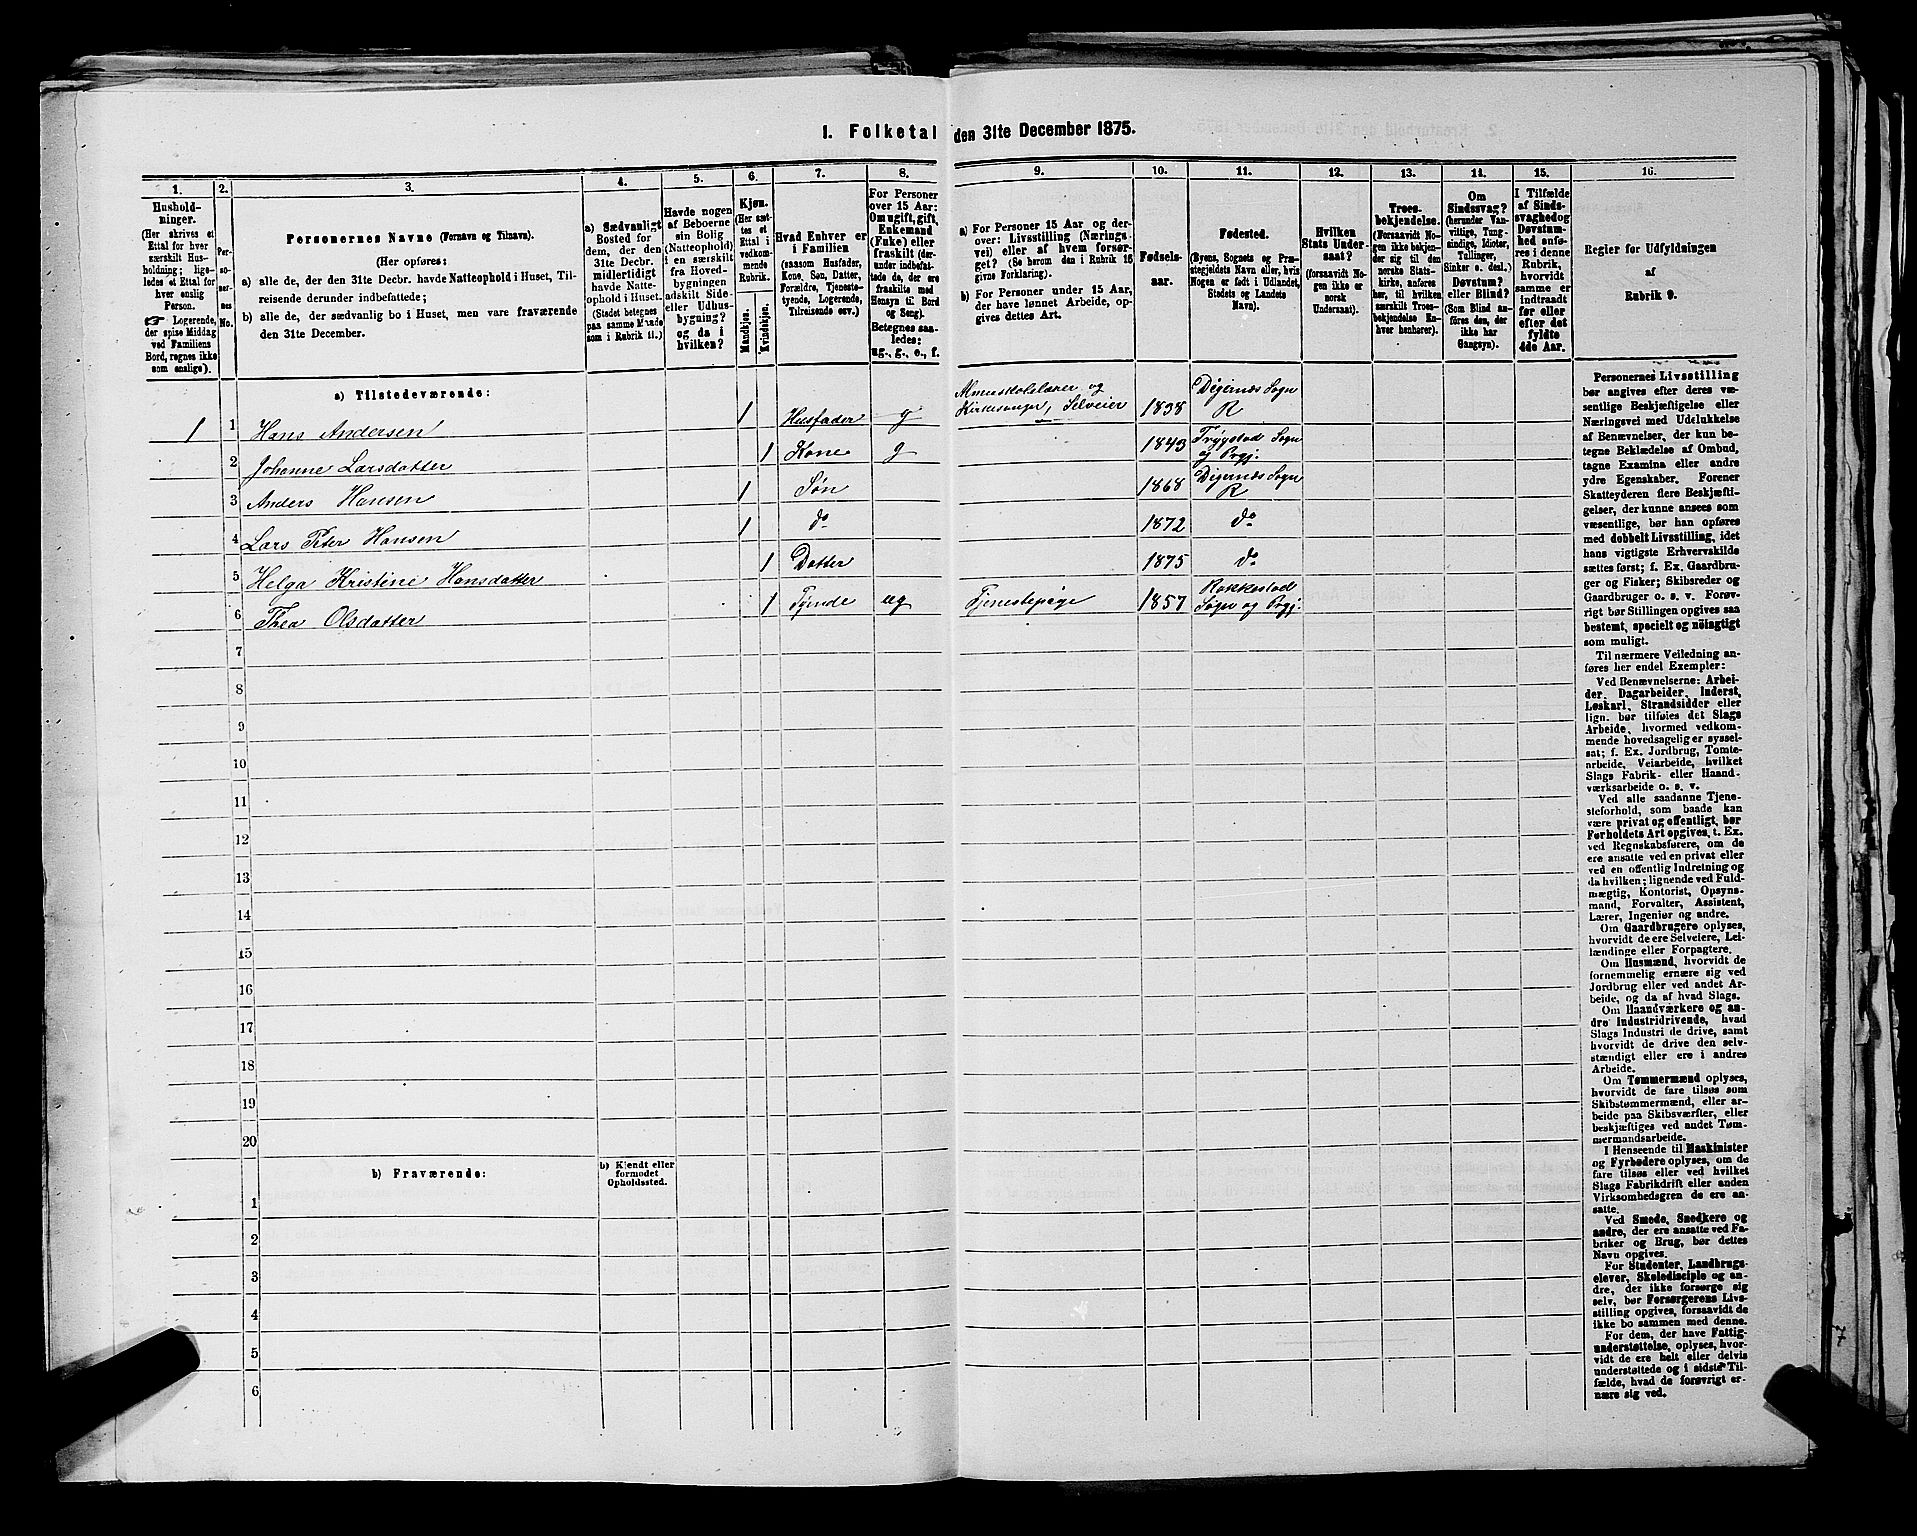 1. Folketal den 31te December 1875.
1. 2. 3. 4. 5. 6. 7. 8. 9. 10. 11. 12. 13. 14. 15. 16.
Hushold-
ninger.
(Her skrives et
Ettal for hver
særskilt Hus-
holdning; lige-
ledes et Ettal for
hver enslig
Person.
☞ Logerende,
der spise Middag
ved Familiens
Bord, regnes ikke
som enslige).
Per-
so-
ner-
nes
No.
Personernes Navne (Fornavn og Tilnavn).
(Her opføres:
a) alle de, der den 31te Decbr. havde Natteophold i Huset, Til-
reisende derunder indbefattede;
b) alle de, der sædvanlig bo i Huset, men vare fraværende
den 31te December.
a) Sædvanligt
Bosted for
dem, der den
31te Decbr.
midlertidigt
havde Natte-
ophold i Huset.
(Stedet betegnes
paa samme Maade
som i Rubrik 11.)
Havde nogen
af Beboerne
sin Bolig
(Natteophold)
i en særskilt
fra Hoved-
bygningen
adskilt Side-
eller Udhus-
bygning?
og da i
hvilken?
Kjøn.
(Her sæt-
tes et
Ettal i
vedkom-
mende
Rubrik.
Mandkjøn.
Kvindekjøn.
Hvad Enhver er
i Familien
(saasom Husfader,
Kone, Søn, Datter,
Forældre, Tjeneste-
tyende, Logerende,
Tilreisende osv.)
For Personer
over 15 Aar:
Om ugift, gift,
Enkemand
(Enke) eller
fraskilt (der-
under indbefat-
tede de, der ere
fraskilte med
Hensyn til Bord
og Seng).
Betegnes saa-
ledes:
ug., g., e., f.
a) For Personer 15 Aar og der-
over: Livsstilling (Nærings-
vei) eller af hvem forsør-
get? (Se herom den i Rubrik 16
givne Forklaring).
b) For Personer under 15 Aar,
der have lønnet Arbeide, op-
gives dettes Art.
Fødsels-
aar.
Fødested.
(Byens, Sognets og Præ-
stegjeldets Navn eller, hvis
Nogen er født i Udlandet,
Stedets og Landets
Navn).
Hvilken
Stats Under-
saat?
(forsaavidt No-
gen ikke er
norsk
Undersaat).
Troes-
bekjendelse.
(Forsaavidt No-
gen ikke bekjen-
der sig til den
norske Stats-
kirke, anføres
her, til hvilken
særskilt Troes-
bekjendelse En-
hver henhører).
Om
Sindssvag?
(herunder Van-
vittige, Tung-
sindige, Idioter,
Tullinger,
Sinker o. desl.)
Døvstum?
eller Blind?
(Som Blind an-
føres den, der
ikke har
Gangsyn).
I Tilfælde
af Sinds-
svaghed og
Døvstum-
hed anfø-
res i denne
Rubrik,
hvorvidt
samme er
indtraadt
før eller
efter det
fyldte
4de Aar.
Regler for Udfyldningen
af
Rubrik 9.
a) Tilstedeværende:
1 1 Hans Andersen 1 Husfader g Almueskolelærer og Kirkesanger, Selveier 1838 Digernæs Sogn R
2 Johanne Larsdatter 1 Kone g 1843 Trygstad Sogn og Prgj.
3 Anders Hansen 1 Søn 1868 Digernæs Sogn R
4 Lars Peter Hansen 1 do 1872 do
5 Helga Kristine Hansdatter 1 Datter 1875 do
6 Thea Olsdatter 1 Tynde ug Tjenestepige 1857 Rakkestad Sogn og Prgj.
7
8
9
10
11
12
13
14
15
16
17
18
19
20
b) Fraværende:
b) Kjendt eller
formodet
Opholdssted.
1
2
3
4
5
6
Personernes Livsstilling
bør angives efter deres væ-
sentlige Beskjæftigelse eller
Næringsvei med Udelukkelse
af Benævnelser, der kun be-
tegne Beklædelse af Ombud,
tagne Examina eller andre
ydre Egenskaber. Forener
Skatteyderen flere Beskjæfti-
gelser, der kunne ansees som
væsentlige, bør han opføres
med dobbelt Livsstilling, idet
hans vigtigste Erhvervskilde
sættes først; f. Ex. Gaardbru-
ger og Fisker; Skibsreder og
Gaardbruger o. s. v. Forøv-
rigt bør Stillingen opgives saa
bestemt, specielt og nöiagtigt
som muligt.
Til nærmere Veiledning an-
føres her endel Exempler:
Ved Benævnelserne: Arbei-
der, Dagarbeider, Inderst,
Løskarl, Strandsidder eller
lign. bør tilføies det Slags
Arbeide, hvormed vedkom-
mende hovedsagelig er syssel-
sat; f. Ex. Jordbrug, Tomte-
arbeide, Veiarbeide, hvilket
Slags Fabrik- eller Haand-
værksarbeide o. s. v.
Ved alle saadanne Tjene-
steforhold, som baade kan
være privat og offentligt, bør
Forholdets Art opgives, t. Ex.
ved Regnskabsførere, om de
ere ansatte ved en privat eller
ved en offentlig Indretning og
da hvilken; lignende ved Fuld-
mægtig, Kontorist, Opsyns-
mand, Forvalter, Assistent,
Lærer, Ingeniør og andre.
Om Gaardbrugere oplyses,
hvorvidt de ere Selveiere, Lei-
lændinge eller Forpagtere.
Om Husmænd, hvorvidt de
fornemmelig ernære sig ved
Jordbrug eller ved andet Ar-
beide, og da af hvad Slags.
Om Haandværkere og an-
dre Industridrivende, hvad
Slags Industri de drive, samt
hvorvidt de drive den selv-
stændigt eller ere i andres
Arbeide.
Om Tømmermænd oplyses,
hvorvidt de fare tilsøs som
Skibstømmermænd, eller ar-
beide paa Skibsværfter, eller
beskjæftiges ved andet Tøm-
mermandsarbeide.
I Henseende til Maskinister
og Fyrbødere oplyses, om de
fare tilsøs eller ved hvilket
Slags Fabrikdrift eller anden
Virksomhedsgren de ere an-
satte.
Ved Smede, Snedkere og
andre, der ere ansatte ved Fa-
briker og Brug, bør dettes
Navn opgives.
For Studenter, Landbrugs-
elever, Skoledisciple og an-
dre, der ikke forsørge sig
selv, bør Forsørgerens Livs-
stilling opgives, forsaavidt de
ikke bo sammen med denne.
For dem, der have Fattig-
understøttelse, oplyses, hvor-
vidt de ere helt eller delvis
understøttede og i sidste Til-
fælde, hvad de forøvrigt er-
nære sig ved.